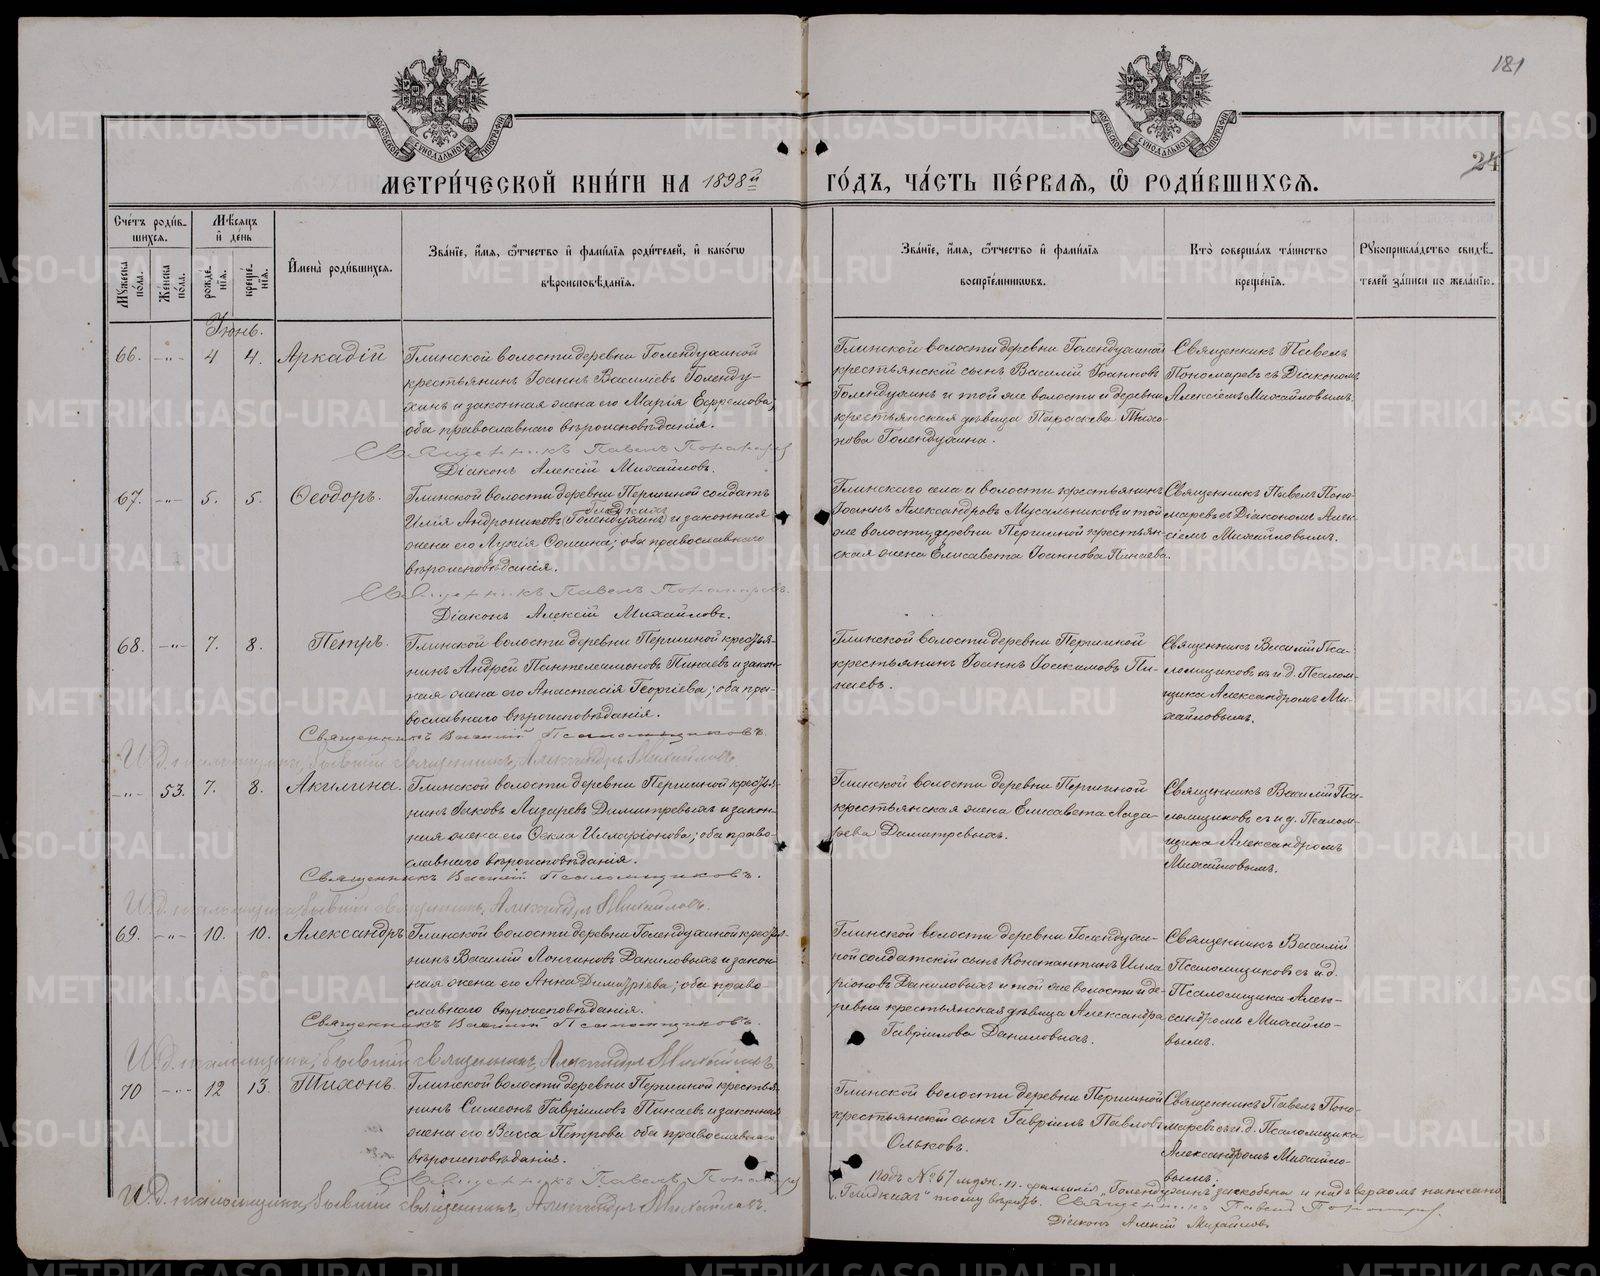 181
24
МОСКОВСКОЙ СѴНОДАЛЬНОЙ ТИПОГРАФІИ
МОСКОВСКОЙ СѴНОДАЛЬНОЙ ТИПОГРАФІИ
МЕТРИ́ЧЕСКОЙ КНИ́ГИ НА 1898й
ГО́ДЪ, ЧА́СТЬ ПЕ́РВАЯ, Ѽ РОДИ́ВШИХСЯ.
Сче́тъ роди́в-
шихся.
Мѣ́сяцъ
и҆ де́нь
Мꙋ́жеска
по́ла.
Же́нска
по́ла.
рожде́-
нїя.
креще́-
нїя.
И҆мена̀ роди́вшихся.
Зва́нїе, и҆́мя, ѻ҆́тчество и҆ фами́лїя роди́телей, и҆ како́гѡ
вѣроисповѣ́данїя.
Зва́нїе, и҆́мя, ѻ҆́тчество и҆ фами́лїя
воспрїе́мникѡвъ.
Кто̀ соверша́лъ та́инство
креще́нїя.
Рꙋкоприкла́дство свидѣ́-
телей за́писи по жела́нїю.
Іюнь.
66. -"- 4 4. Аркадій
Глинской волости деревни Голендухиной
крестьянинъ Іоаннъ Василіевъ Голенду-
хинъ и законная жена его Марія Ефремова,
оба православнаго вѣроисповѣданія.
Священникъ Павелъ Пономаревъ
Діаконъ Алексій Михайловъ.
Глинской волости деревни Голендухиной
крестьянскій сынъ Василій Іоанновъ
Голендухинъ и той же волости и деревни
крестьянская дѣвица Параскева Тихо-
нова Голендухина.
Священникъ Павелъ
Пономаревъ съ Діакономъ
Алексіемъ Михайловымъ.
67. -"- 5. 5. Ѳеодоръ.
Глинской волости деревни Першиной солдатъ
Гладкихъ
Илія Андрониковъ (Голендухинъ) и законная
жена его Лукія Сомина; оба православнаго
вѣроисповѣданія.
Священникъ Павелъ Пономаревъ.
Діаконъ Алексій Михайловъ.
Глинскаго села и волости крестьянинъ
Іоаннъ Александровъ Мусальниковъ и той
же волости, деревни Першиной крестьян-
ская жена Елисавета Іоаннова Пинаева.
Священникъ Павелъ Поно-
маревъ съ Діакономъ Алек-
сіемъ Михайловымъ.
68. -"- 7. 8. Петръ.
Глинской волости деревни Першиной крестья-
нинъ Андрей Пантелеимоновъ Пинаевъ и закон-
ная жена его Анастасія Георгіева; оба пра-
вославнаго вѣроисповѣданія.
Священникъ Василій Псаломщиковъ.
И. д. псаломщика, бывшій священникъ, Александръ Михайловъ.
Глинской волости деревни Першиной
крестьянинъ Іоаннъ Іоакимовъ Пи-
наевъ.
Священникъ Василій Пса-
ломщиковъ съ и. д. Псалом-
щика Александромъ Ми-
хайловымъ.
-"- 53. 7. 8. Акилина.
Глинской волости деревни Першиной крестья-
нинъ Іаковъ Лазаревъ Димитревыхъ и закон-
ная жена его Ѳекла Илларіонова; оба право-
славнаго вѣроисповѣданія.
Священникъ Василій Псаломщиковъ.
И. д. псаломщика, бывшій священникъ, Александръ Михайловъ.
Глинской волости деревни Першиной
крестьянская жена Елисавета Лаза-
рева Димитревыхъ.
Священникъ Василій Пса-
ломщиковъ съ и. д. Псалом-
щика Александромъ
Михайловымъ.
69. -"- 10. 10. Александръ
Глинской волости деревни Голендухиной крестья-
нинъ Василій Лонгиновъ Даниловыхъ и закон-
ная жена его Анна Димитріева; оба право-
славнаго вѣроисповѣданія.
Священникъ Василій Псаломщиковъ.
И. д. псаломщика, бывшій священникъ, Александръ Михайловъ
Глинской волости деревни Голендухи-
ной солдатскій сынъ Константинъ Илла-
ріоновъ Даниловыхъ и той же волости и де-
ревни крестьянская дѣвица Александра
Гавріилова Даниловыхъ.
Священникъ Василій
Псаломщиковъ съ и. д.
Псаломщика Алек-
сандромъ Михайло-
вымъ.
70 -"- 12 13. Тихонъ.
Глинской волости деревни Першиной крестья-
нинъ Симеонъ Гавріиловъ Пинаевъ и законная
жена его Васса Петрова оба православнаго
вѣроисповѣданія.
Священникъ Павелъ Пономаревъ
И. д. псаломщика, бывшій священникъ, Александръ Михайловъ.
Глинской волости деревни Першиной
крестьянскій сынъ Гавріилъ Павловъ
Ольковъ.
Священникъ Павелъ Поно-
маревъ съ и. д. Псаломщика
Александромъ Михайло-
вымъ.
Подъ №67 муж. п. фамилія "Голендухинъ" заскоблена и надъ верхомъ написано
"Гладкихъ" тому вѣрить. Священникъ Павелъ Пономаревъ.
Діаконъ Алексій Михайловъ.